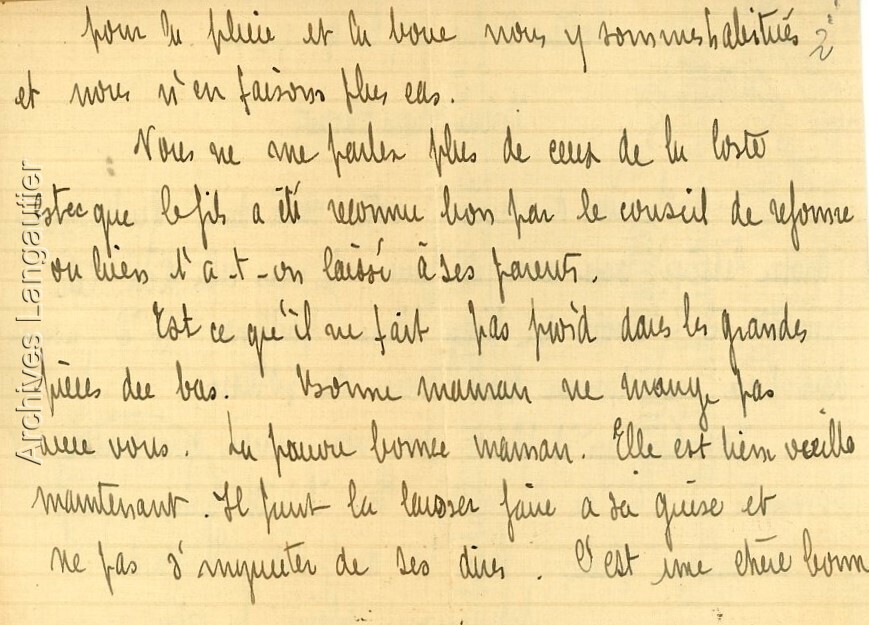 pour la pluie et la boue nous y sommes habitués 2
et nous n'en faisons plus cas.
Vous ne me parlez plus de ceux de la Coste
estce que le fils a été reconnu bon par le conseil de reforme
ou bien l'a-t-on laissé à ses parents.
Est ce qu'il ne fait pas froid dans les grandes
pièces du bas. Bonne maman ne mange pas
avec vous. La pauvre bonne maman. Elle est bien vieille
maintenant. Il faut la laisser faire a sa guise et
ne pas s'inquieter de ses dires. C'est une chère bonne
Archives Langautier